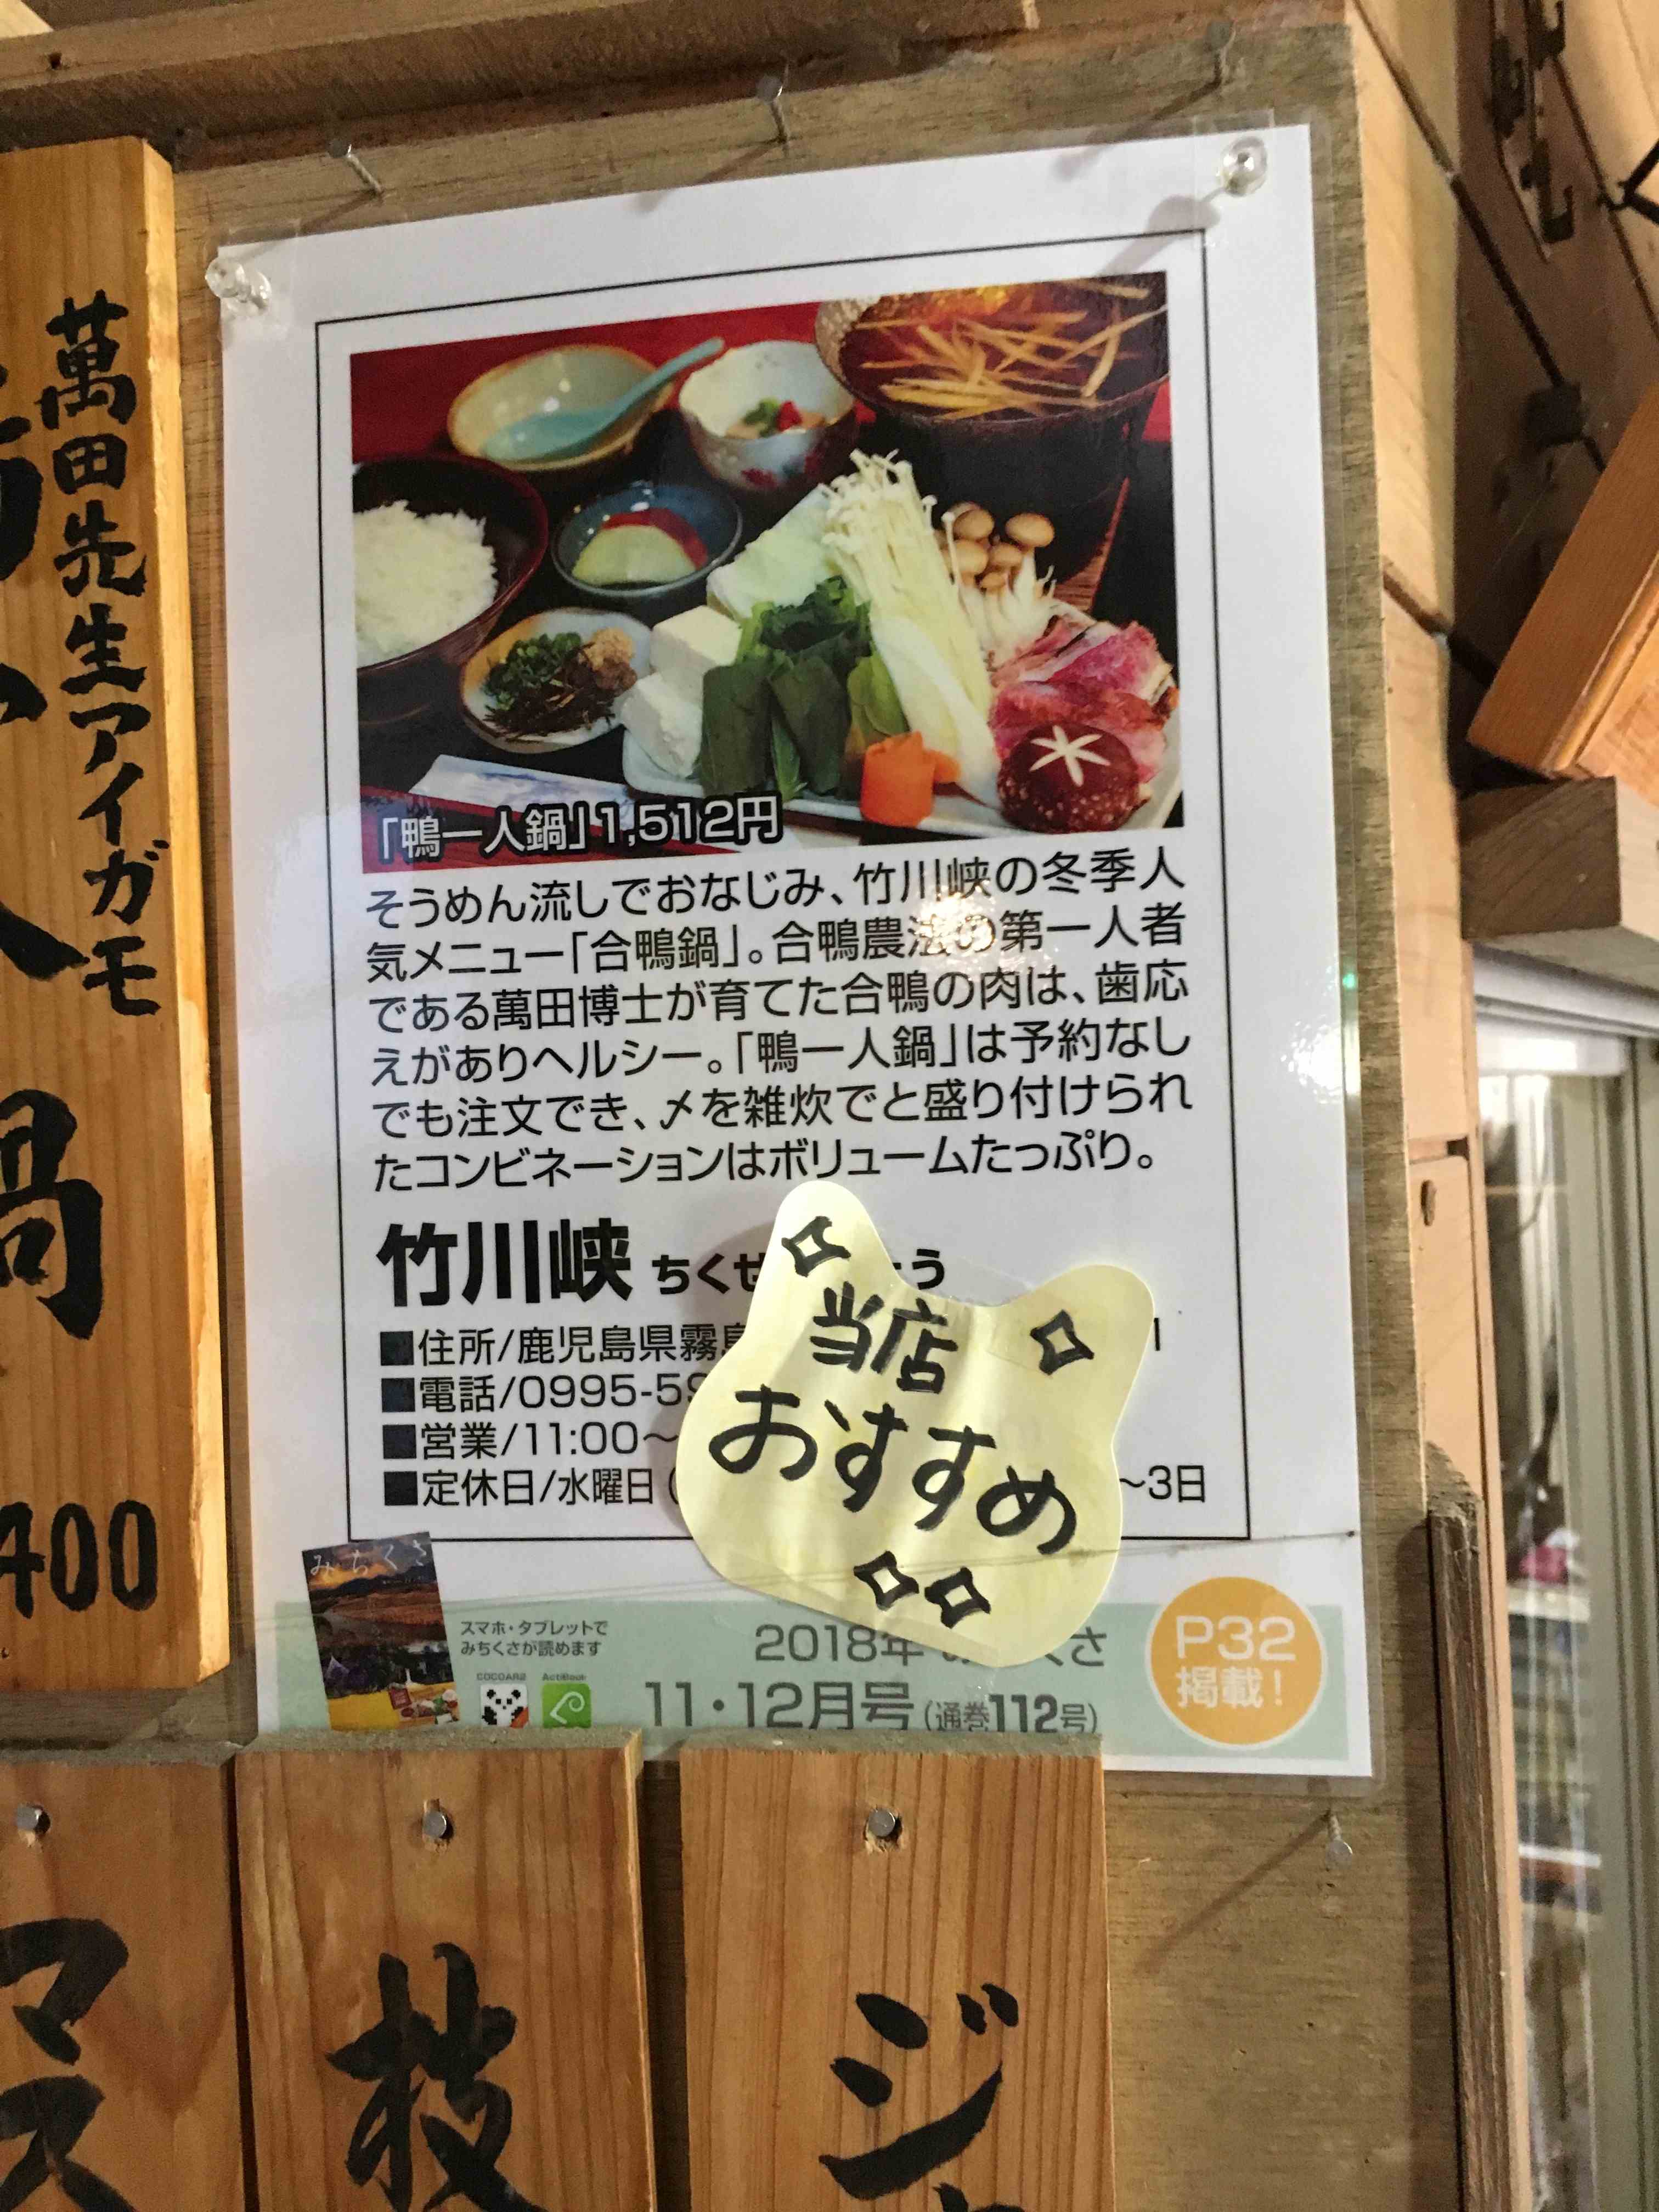 萬田先生アイガモ
鍋
400
「鴨一人鍋」1,512円
そうめん流しでおなじみ、竹川峡の冬季人
気メニュー「合鴨鍋」。合鴨農法の第一人者
である萬田博士が育てた合鴨の肉は、歯応
えがありヘルシー。「鴨一人鍋」は予約なし
でも注文でき、〆を雑炊でと盛り付けられ
たコンビネーションはボリュームたっぷり。
竹川峡 ちくせ う
■住所/鹿児島県霧島
■電話/0995-59
■営業/11:00〜
■定休日/水曜日( 〜3日
当店
おすすめ
みちくさ
スマホ・タブレットで
みちくさが読めます
COCOAR2
2018年 くさ
11・12月号(通巻112号)
P32
掲載!
マス
枝
ジ